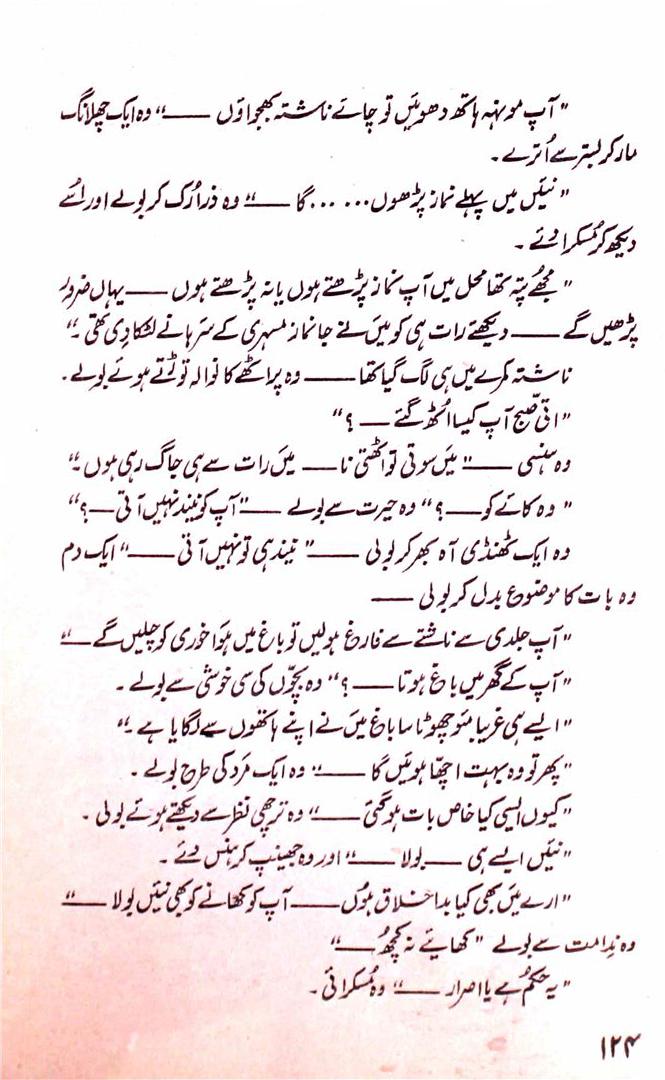 "آپ مونہہ ہاتھ دھوئیں تو چائے ناشتہ بھجواؤں ——" وہ ایک چھلانگ
مار کر بستر سے اُترے۔
"نئیں میں پہلے نماز پڑھوں... ...گا ——" وہ ذرا رُک کر بولے اور اُسے
دیکھ کر مُسکرا دئے۔
"مجھے پتہ تھا محل میں آپ نماز پڑھتے ہوں یا نہ پڑھتے ہوں —— یہاں ضرور
پڑھیں گے —— دیکھئے رات ہی کو میں نے جانماز مسہری کے سرہانے لٹکا دی تھی۔"
ناشتہ کمرے میں ہی لگ گیا تھا —— وہ پراٹھے کا نوالہ توڑتے ہوئے بولے۔
"اتی صبح آپ کیسا اُٹھ گئے —— ؟"
وہ ہنسی —— "میں سوتی تو اٹھتی نا —— میں رات سے ہی جاگ رہی ہوں۔"
"وہ کائے کو —— ؟" وہ حیرت سے بولے —— "آپ کو نیند نہیں آتی —— ؟"
وہ ایک ٹھنڈی آہ بھر کر بولی —— "نیند ہی تو نہیں آتی ——" ایک دم
وہ بات کا موضوع بدل کر بولی ——
"آپ جلدی سے ناشتے سے فارغ ہولیں تو باغ میں ہوا خوری کو چلیں گے ——"
"آپ کے گھر میں باغ ہوتا —— ؟" وہ بچّوں کی سی خوشی سے بولے۔
"ایسے ہی غریبا مئو چھوٹا سا باغ میں نے اپنے ہاتھوں سے لگایا ہے۔"
"پھر تو وہ بہت اچھا ہوئیں گا ——" وہ ایک مَرد کی طرح بولے۔
"کیوں ایسی کیا خاص بات ہوگئی ——" وہ ترچھی نظر سے دیکھتے ہوئے بولی۔
"نئیں ایسے ہی —— بولا ——" اور وہ جھینپ کر ہنس دئے۔
"ارے میں بھی کیا بداخلاق ہوں —— آپ کو کھانے کو بھی نئیں بولا ——"
وہ ندامت سے بولے "کھایئے نہ کچھ ——"
"یہ حکم ہے یا اصرار ——" وہ مُسکرائی۔
۱۲۴